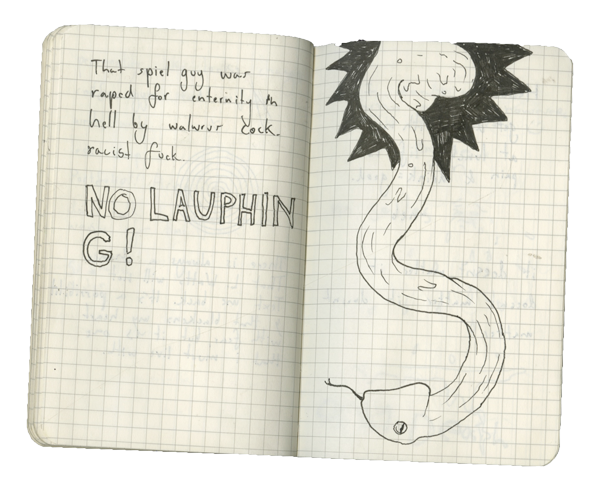 That spiel guy was
raped for enternity in
hell by walwrus cock.
racist fuck.
NO LAUPHIN
G!